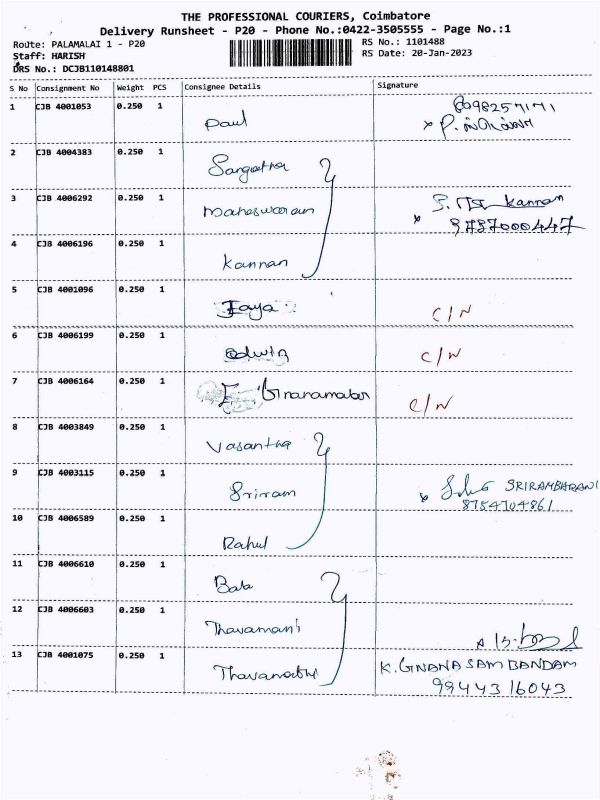 THE PROFESSIONAL COURIERS, Coimbatore
Delivery Runsheet - P20 - Phone No.:0422-3505555 - Page No.:1
Route: PALAMALAI 1 - P20
RS No.: 1101488
Staff: HARISH
RS Date: 20-Jan-2023
DRS No.: DCJB110148801
S No Consignment No Weight PCS Consignee Details Signature
1 CJB 4001053 0.250 1 Paul
2 CJB 4004383 0.250 1 Sangeetha
3 CJB 4006292 0.250 1 Maheswaran S. Kannan
9787000447
4 CJB 4006196 0.250 1 Kannan
5 CJB 4001096 0.250 1 Jaya C/N
6 CJB 4006199 0.250 1 Edwin C/N
7 CJB 4006164 0.250 1 Gnanamalar C/N
8 CJB 4003849 0.250 1 Vasantha
9 CJB 4003115 0.250 1 Sriram SRIRAMBARANI
8754704861
10 CJB 4006589 0.250 1 Rahul
11 CJB 4006610 0.250 1 Bala
12 CJB 4006603 0.250 1 Thavamani
13 CJB 4001075 0.250 1 K. GNANASAMBANDAM
9944316043